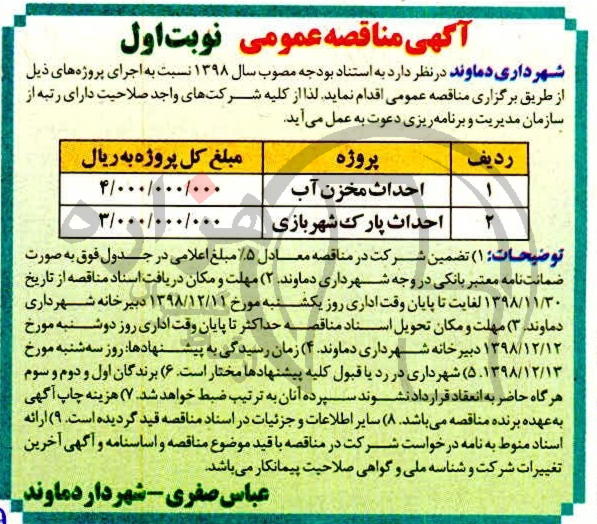 آگهی مناقصه عمومی نوبت اول
شهرداری دماوند درنظر دارد به استناد بودجه مصوب سال ۱۳۹۸ نسبت به اجرای پروژه‌های ذیل
از طریق برگزاری مناقصه عمومی اقدام نماید. لذا از کلیه شرکت‌های واجد صلاحیت دارای رتبه از
سازمان مدیریت و برنامه‌ریزی دعوت به عمل می‌آید.
ردیف پروژه مبلغ کل پروژه به ریال
۱ احداث مخزن آب ۴/۰۰۰/۰۰۰/۰۰۰
۲ احداث پارک شهربازی ۳/۰۰۰/۰۰۰/۰۰۰
توضیحات: ۱) تضمین شرکت در مناقصه معادل ۵٪ مبلغ اعلامی در جدول فوق به صورت
ضمانت‌نامه معتبر بانکی در وجه شهرداری دماوند. ۲) مهلت و مکان دریافت اسناد مناقصه از تاریخ
۱۳۹۸/۱۱/۳۰ لغایت تا پایان وقت اداری روز یکشنبه مورخ ۱۳۹۸/۱۲/۱۱ دبیرخانه شهرداری
دماوند. ۳) مهلت و مکان تحویل اسناد مناقصه حداکثر تا پایان وقت اداری روز دوشنبه مورخ
۱۳۹۸/۱۲/۱۲ دبیرخانه شهرداری دماوند. ۴) زمان رسیدگی به پیشنهادها: روز سه‌شنبه مورخ
۱۳۹۸/۱۲/۱۳. ۵) شهرداری در رد یا قبول کلیه پیشنهادها مختار است. ۶) برندگان اول و دوم و سوم
هرگاه حاضر به انعقاد قرارداد نشوند سپرده آنان به ترتیب ضبط خواهد شد. ۷) هزینه چاپ آگهی
به عهده برنده مناقصه می‌باشد. ۸) سایر اطلاعات و جزئیات در اسناد مناقصه قید گردیده است. ۹) ارائه
اسناد منوط به نامه درخواست شرکت در مناقصه با قید موضوع مناقصه و اساسنامه و آگهی آخرین
تغییرات شرکت و شناسه ملی و گواهی صلاحیت پیمانکار می‌باشد.
عباس صفری - شهردار دماوند